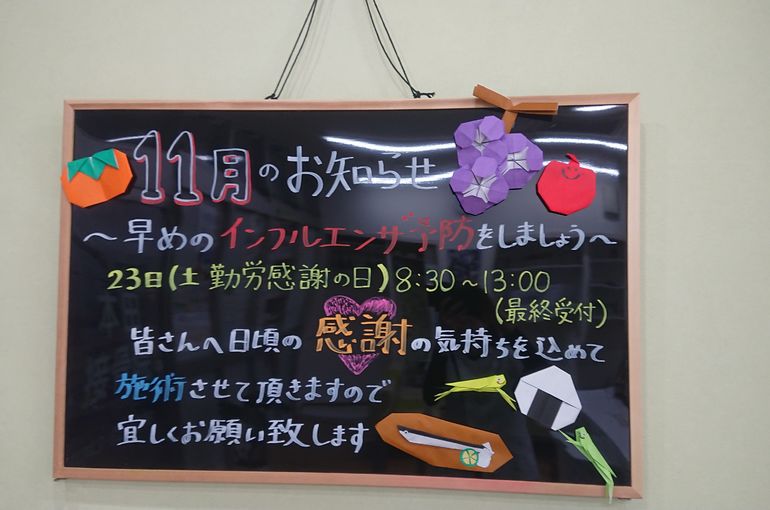 11月のお知らせ
～早めのインフルエンザ予防をしましょう～
23日(土 勤労感謝の日) 8:30～13:00
(最終受付)
皆さんへ日頃の感謝の気持ちを込めて
施術させて頂きますので
宜しくお願い致します